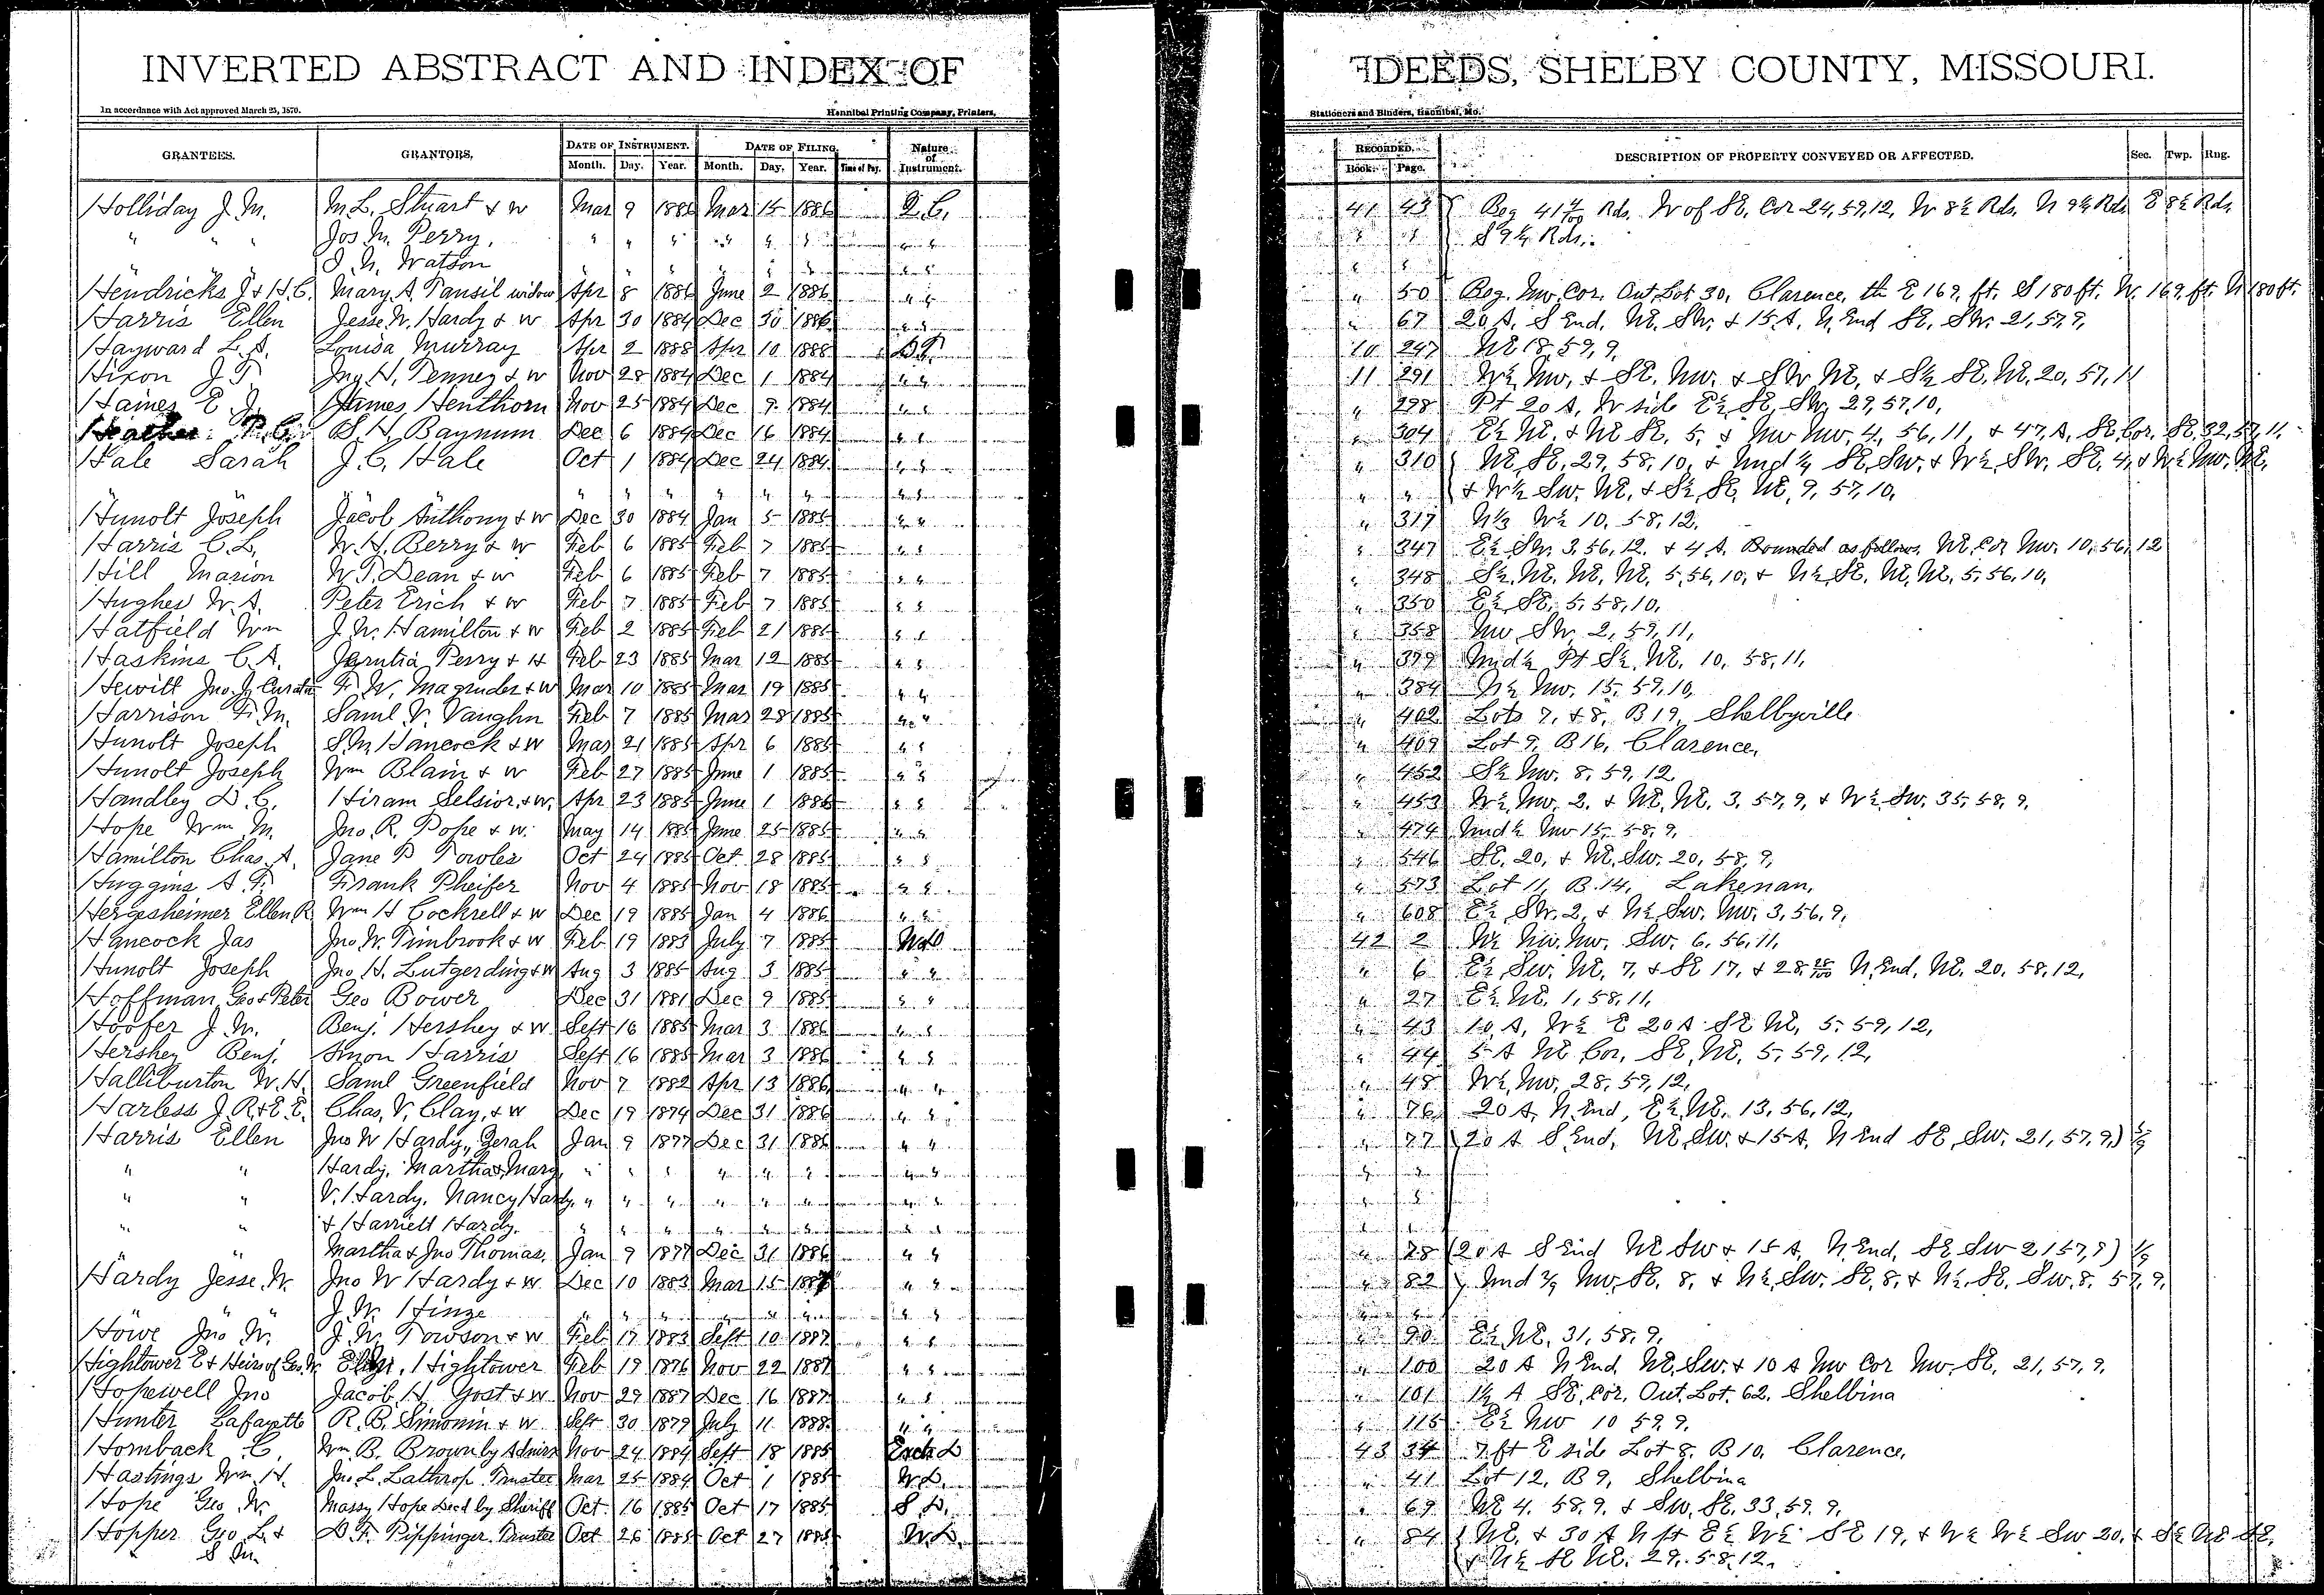 INVERTED ABSTRACT AND INDEX OF DEEDS, SHELBY COUNTY, MISSOURI.
In accordance with Act approved March 25, 1870. Hannibal Printing Company, Printers, Stationers and Binders, Hannibal, Mo.
GRANTEES. GRANTORS. DATE OF INSTRUMENT. Month. Day. Year. DATE OF FILING. Month. Day. Year. Time of Day. Nature of Instrument. RECORDED. Book. Page. DESCRIPTION OF PROPERTY CONVEYED OR AFFECTED. Sec. Twp. Rng.
Holliday J. M. M. L. Stuart & w Mar 9 1886 Mar 15 1886 Q.C. 41 43 Beg 41 4/100 Rds. W of SE, Cor 24, 59, 12, W 8½ Rds. N 9½ Rds E 8½ Rds,
" " " Jos M. Perry, " " " " " " " " " " S 9½ Rds.
" J. N. Watson " " " " " " " " " "
Hendricks J & H. C. Mary A. Tansil widow Apr 8 1886 June 2 1886 " " " 50 Beg. NW. Cor. Out Lot 30, Clarence, th E 169, ft. S 180 ft. W. 169, ft. N 180 ft.
Harris Ellen Jesse W. Hardy & w Apr 30 1884 Dec 30 1886 " " " 67 20 A. S End, NE, SW. & 15 A. N End SE, SW. 21, 57, 9,
Hayward L. A. Louisa Murray Apr 2 1888 Apr 10 1888 10 247 NE 18, 59, 9,
Hixon J T Jno H. Penney & w Nov 28 1884 Dec 1 1884 " " 11 291 W½ NW, & SE, NW, & SW NE, & S½ SE, NE, 20, 57, 11
Haines E J. James Henthorn Nov 25 1884 Dec 9 1884 " " " 298 Pt 20 A, W side E½ SE, SW, 29, 57, 10,
Heather B. H. Baynum Dec 6 1884 Dec 16 1884 " " " 304 E½ NE, & NE SE, 5, & NW NW, 4, 56, 11, & 47, A, SE, Cor, SE, 32, 57, 11,
Hale Sarah J. C. Hale Oct 1 1884 Dec 24 1884 " " " 310 NE, SE, 29, 58, 10, & Und ¼ SE, SW, & W½ SW, SE, 4, & W½ NW, NE,
" " " " " " " " " " & W½ SW, NE, & S½, SE, NE, 9, 57, 10,
Hunolt Joseph Jacob Anthony & w Dec 30 1884 Jan 5 1885 " " " 317 N⅓ W½ 10, 58, 12,
Harris C. L. W. H. Berry & w Feb 6 1885 Feb 7 1885 " " " 347 E½ SW. 3, 56, 12, & 4 A. Bounded as follows, NE, Cor NW. 10, 56, 12
Hill Marion W. T. Dean & w Feb 6 1885 Feb 7 1885 " " " 348 S½, NE, NE, NE, 5, 56, 10, & N½, SE, NE, NE, 5, 56, 10,
Hughes W. A. Peter Erich & w Feb 7 1885 Feb 7 1885 " " " 350 E½, SE, 5, 58, 10,
Hatfield Wm J. W. Hamilton & w Feb 2 1885 Feb 21 1885 " " " 358 NW SW 2, 59, 11,
Haskins C. A. Perry & H Feb 23 1885 Mar 12 1885 " " " 379 Und ½ Pt S½, NE, 10, 58, 11,
Hewitt Jno. J. Curator F. W. Magruder & w Mar 10 1885 Mar 19 1885 " " " 384 N½ NW. 15, 59, 10,
Harrison F. M. Saml V. Vaughn Feb 7 1885 Mar 28 1885 " " " 402 Lots 7, & 8, B 19, Shelbyville
Hunolt Joseph S. M. Hancock & w Mar 21 1885 Apr 6 1885 " " " 409 Lot 9, B 16, Clarence,
Hunolt Joseph Wm Blain & w Feb 27 1885 June 1 1885 " " " 452 S½ NW. 8, 59, 12
Handley D. C. Hiram Selsior, & w. Apr 23 1885 June 1 1885 " " " 453 W½, NW, 2, & NE, NE, 3, 57, 9, & W½, SW. 35, 58, 9,
Hope Wm. M. Jno. R. Pope & w. May 14 1885 June 25 1885 " " " 474 Und ½ NW 15, 58, 9,
Hamilton Chas. A. Jane P Towles Oct 24 1885 Oct 28 1885 " " " 546 SE, 20, & NE, SW. 20, 58, 9,
Huggins A. F. Frank Pheifer Nov 4 1885 Nov 18 1885 " " " 573 Lot 11, B. 14, Lakenan,
Hergesheimer Ellen R Wm H Cockrell & w Dec 19 1885 Jan 4 1886 " " " 608 E½, SW. 2, & N½, SW. NW. 3, 56, 9,
Hancock Jas Jno W. Timbrook & w Feb 19 1883 July 7 1885 W.D. 42 2 W½ NW. NW. SW. 6, 56, 11,
Hunolt Joseph Jno H. Lutgerding & w Aug 3 1885 Aug 3 1885 " " " 6 E½, SW. NE, 7, & SE 17, & 28 28/100 N, End, NE, 20, 58, 12,
Hoffman, Geo & Peter Geo Bower Dec 31 1881 Dec 9 1885 " " " 27 E½ NE, 1, 58, 11,
Hoofer J. W. Benj. Hershey & w Sept 16 1885 Mar 3 1886 " " " 43 10 A, W½ E 20 A SE NE, 5, 59, 12,
Hershey Benj. Amon Harris Sept 16 1885 Mar 3 1886 " " " 44 5 A NE Cor. SE, NE, 5, 59, 12,
Halliburton W. H. Saml Greenfield Nov 7 1882 Apr 13 1886 " " " 48 W½, NW, 28, 59, 12,
Harless J. R. & E. E. Chas. V. Clay, & w Dec 19 1874 Dec 31 1886 " " " 76 20 A, N End, E½, NE, 13, 56, 12,
Harris Ellen Jno W Hardy, Zerah Jan 9 1877 Dec 31 1886 " " " 77 (20 A S End, NE, SW. & 15 A, N End SE, SW, 21, 57, 9,) 5/9
" " Hardy, Martha, Mary " " " " " " " " " "
" " V. Hardy, Nancy Hardy, " " " " " " " " " "
" " & Harriett Hardy. " " " " " " " " " "
" " Martha & Jno Thomas, Jan 9 1877 Dec 31 1886 " " " 78 (20 A S End NE SW & 15 A, N End, SE SW 21 57, 9) 1/9
Hardy Jesse W. Jno W Hardy & w Dec 10 1883 Mar 15 1887 " " " 82 Und 2/9 NW, SE, 8, & N½, SW. SE, 8, & N½, SE, SW, 8, 57, 9,
" " " J. W. Hinze " " " " " " " " " "
Howe Jno W. J. W. Towson & w Feb 17 1883 Sept 10 1887 " " " 90 E½ NE, 31, 58, 9,
Hightower E & Heirs of Geo. W. Hightower Feb 19 1876 Nov 22 1887 " " " 100 20 A N End, NE, SW. & 10 A NW Cor NW. SE, 21, 57, 9,
Hopewell Jno Jacob H. Yost & w Nov 29 1887 Dec 16 1887 " " " 101 1½ A SE, Cor, Out Lot, 62, Shelbina
Hunter Lafayette R. B. Simonin & w Sept 30 1879 July 11 1888 " " " 115 E½ NW 10 59 9,
Hornback C. Wm B. Brown by Admin Nov 24 1884 Sept 18 1885 Exch D 43 34 7 ft E side Lot 8, B 10, Clarence,
Hastings Wm. H. Jno. L. Lathrop Trustee Mar 25 1884 Oct 1 1885 W.D. " 41 Lot 12, B 9, Shelbina
Hope Geo W. Massy Hope Decd by Sheriff Oct 16 1885 Oct 17 1885 S D. " 69 NE 4, 58, 9, & SW, SE, 33, 59, 9,
Hopper Geo L & D. F. Pippinger Trustee Oct 26 1885 Oct 27 1885 W.D. " 84 NE, & 30 A N pt E½ W½ SE 19, & W½ W½ SW 20, & S½ NE SE,
S M. & N½ SE NE, 29, 58, 12,